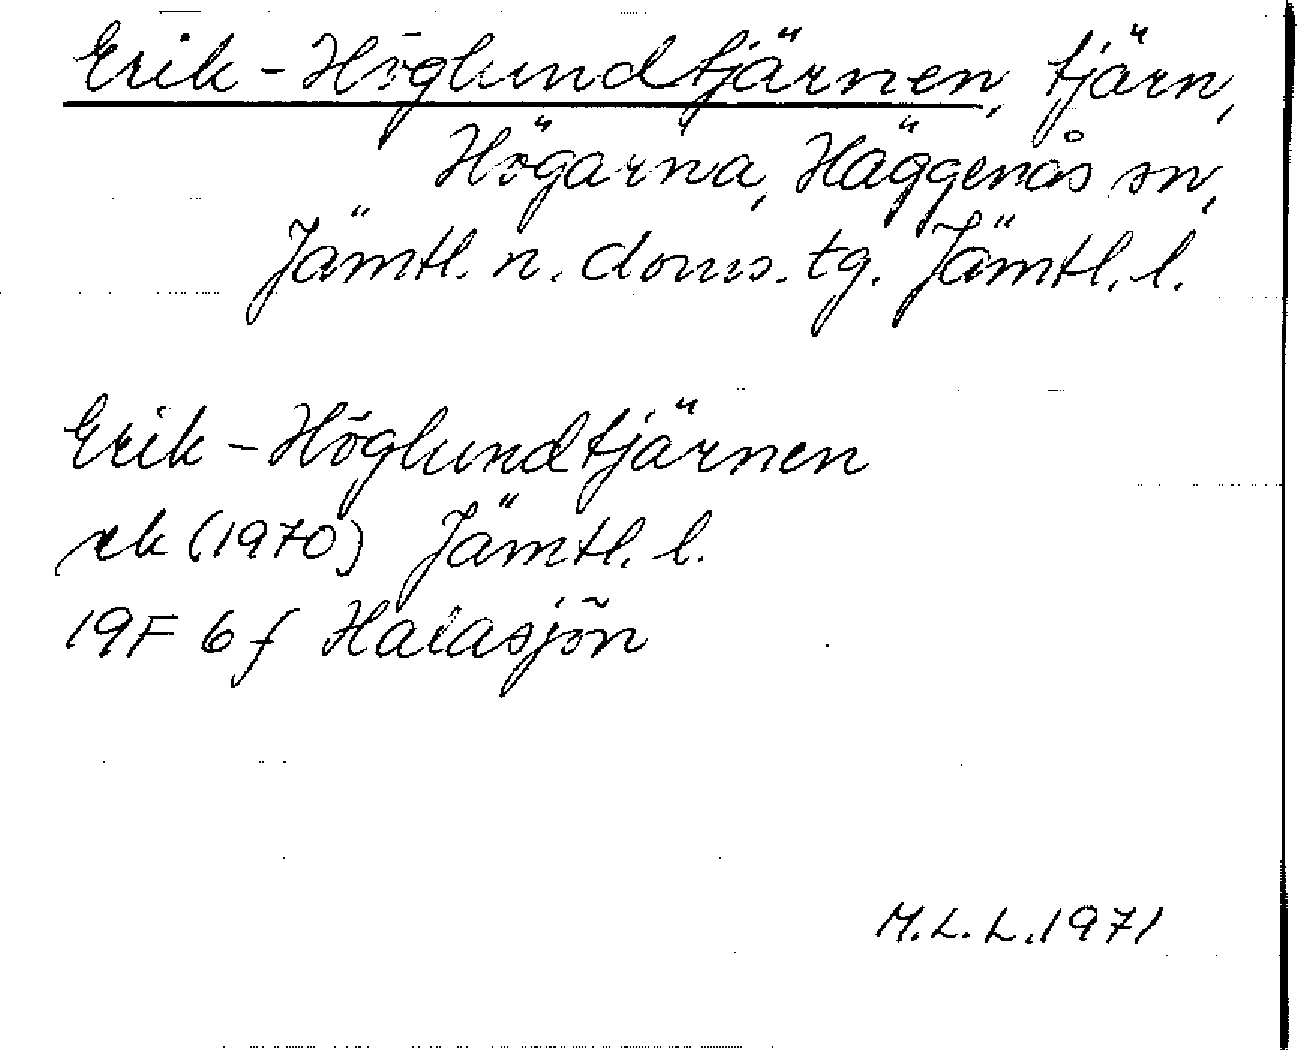 Erik-Höglundtjärnen, tjärn,
Högarna, Häggenås sn,
Jämtl. n. doms. tg. Jämtl. l.
Erik-Höglundtjärnen
ek (1970) Jämtl. l.
19F 6f Halasjön
M.L.L. 1971